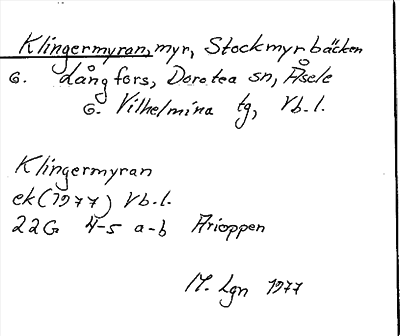 Klingermyran, myr, Stockmyrbäcken
G. Långfors, Dorotea sn, Åsele
G. Vilhelmina tg, Vb.l.
Klingermyran
ek (1977) Vb.l.
22G 4-5 a-b Arioppen
M. Lgn 1977